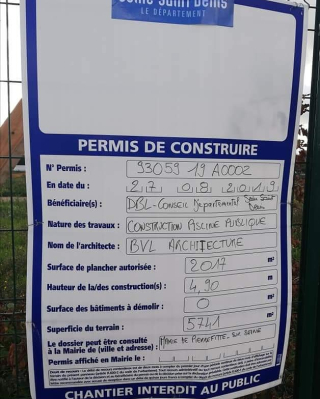 Seine-Saint-Denis
LE DÉPARTEMENT
PERMIS DE CONSTRUIRE
N° Permis : 93059 19 A0002
En date du : 27 08 2019
Bénéficiaire(s) : DBL-CONSEIL Départemental Seine Saint Denis
Nature des travaux : CONSTRUCTION PISCINE PUBLIQUE
Nom de l'architecte : BVL ARCHITECTURE
Surface de plancher autorisée : 2017 m²
Hauteur de la/des construction(s) : 4,90 m
Surface des bâtiments à démolir : 0 m²
Superficie du terrain : 5741 m²
Le dossier peut être consulté
à la Mairie de (ville et adresse) : MAIRIE DE PIERREFITTE SUR SEINE
Permis affiché en Mairie le :
CHANTIER INTERDIT AU PUBLIC